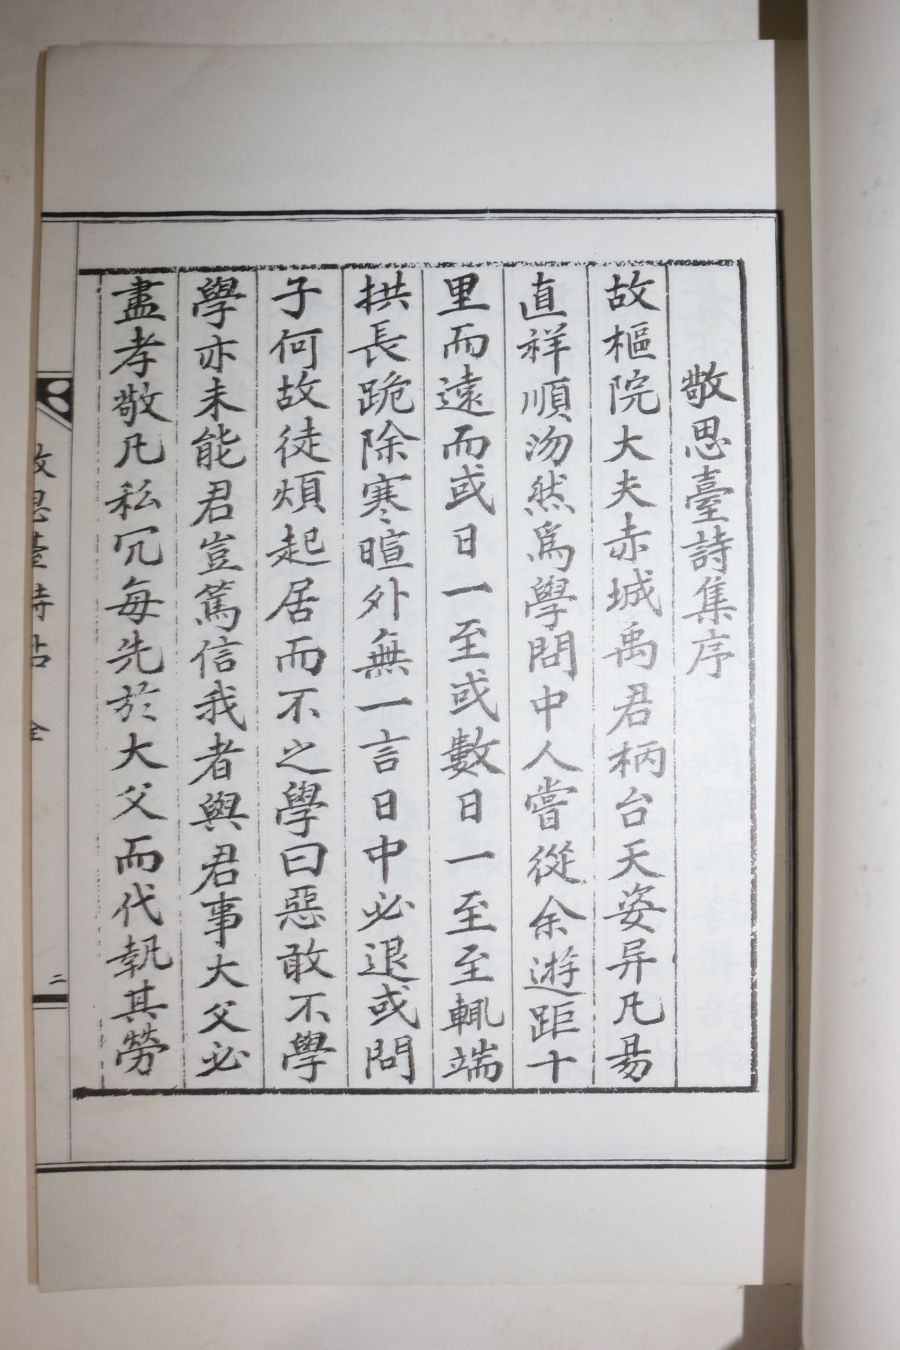 敬思臺詩集序
故樞院大夫赤城禹君柄台天姿异凡昜
直祥順沕然爲學問中人嘗從余遊距十
里而遠而或日一至或數日一至至輒端
拱長跪除寒暄外無一言日中必退或問
子何故徒煩起居而不之學曰惡敢不學
學亦未能君豈篤信我者與君事大父必
盡孝敬凡私冗每先於大父而代執其勞
敬思臺詩 全
二